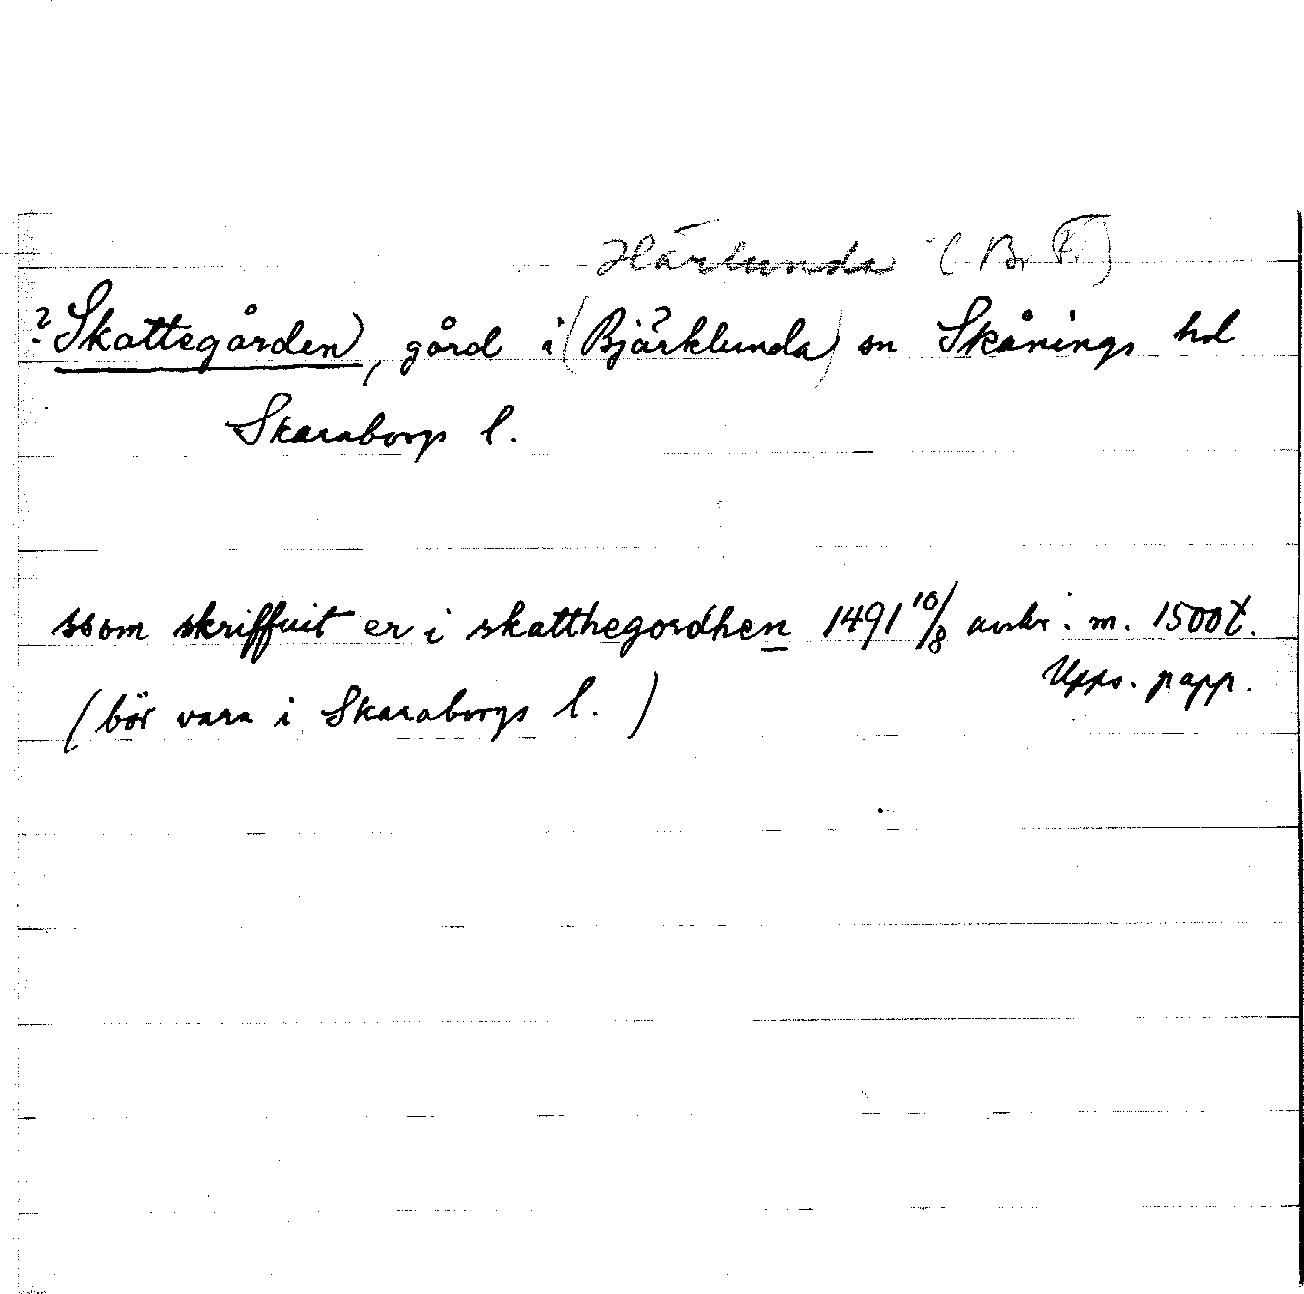 Härlunda (B. F.)
? Skattegården, gård i (Bjärklunda) sn Skånings hd
Skaraborgs l.
ssom skriffuit er i skatthegordhen 1491 10/8 avskr. m. 1500t.
Upps. papp.
(bör vara i Skaraborgs l.)